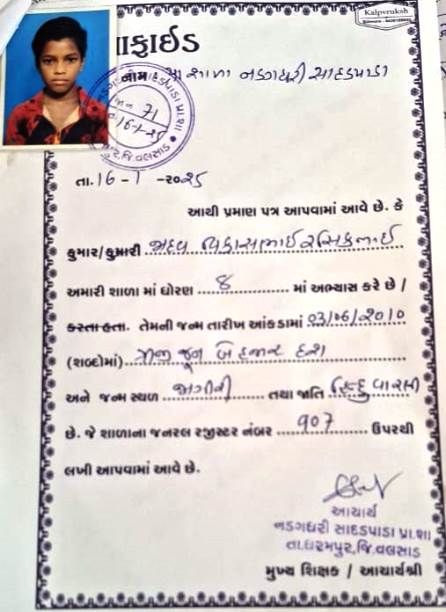 Kalpvruksh
નાફાઈડ
નામ : પ્રા શાળા નડગધરી સાદડપાડા
તા. 16 - 1 - ૨૦25
આથી પ્રમાણ પત્ર આપવામાં આવે છે. કે
કુમાર/કુમારી જાદવ વિકાસભાઈ રસિકભાઈ
અમારી શાળા માં ધોરણ 8 માં અભ્યાસ કરે છે /
કરતા હતા. તેમની જન્મ તારીખ આંકડામાં 03/06/2010
(શબ્દોમાં) ત્રીજી જૂન બે હજાર દશ
અને જન્મ સ્થળ તથા જાતિ હિન્દુ વારલી
છે. જે શાળાના જનરલ રજીસ્ટર નંબર 907 ઉપરથી
લખી આપવામાં આવે છે.
આચાર્ય
નડગધરી સાદડપાડા પ્રા.શા
તા.ધરમપુર,જિ.વલસાડ
મુખ્ય શિક્ષક / આચાર્યશ્રી